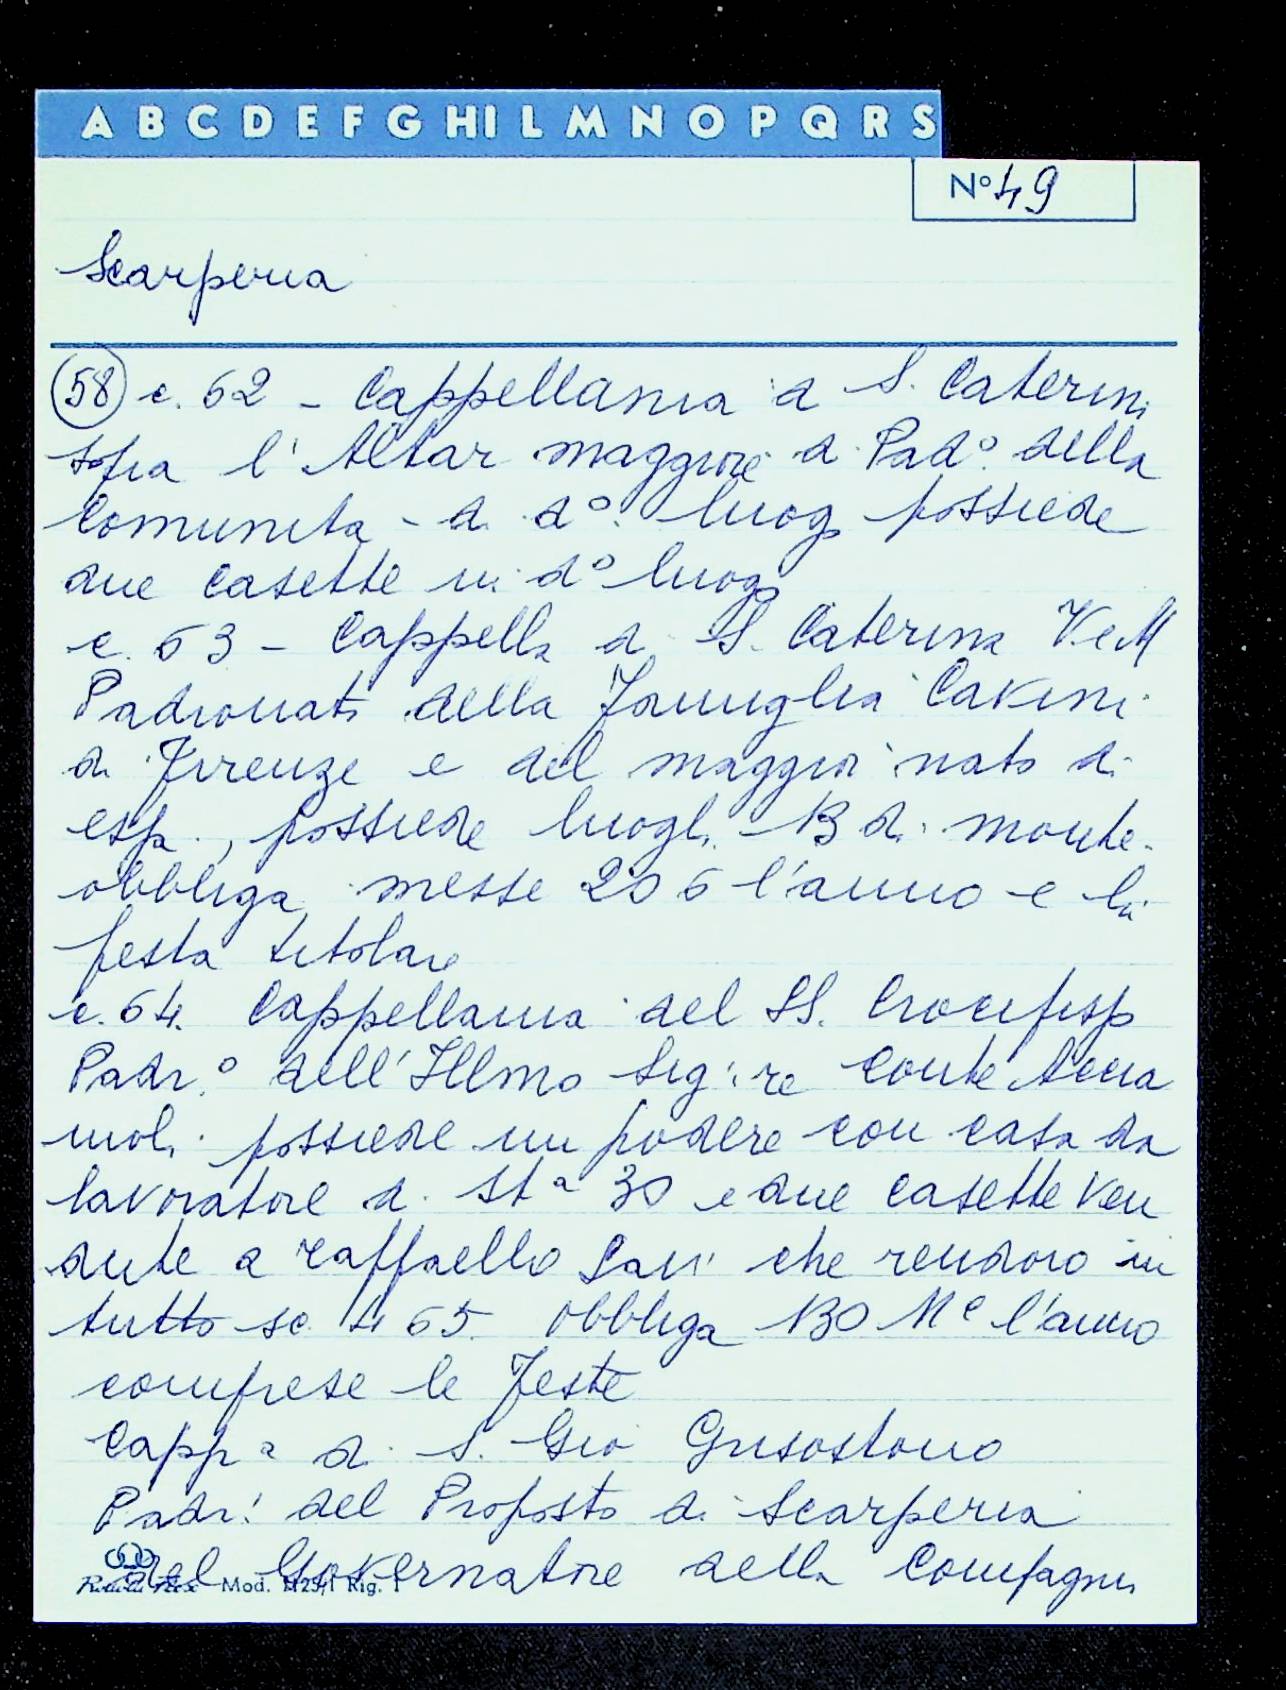 A B C D E F G H I L M N O P Q R S
N° 49
Scarperia
(58) c. 62 - Cappellania di S. Caterina
sopra l'Altar maggiore di Pad° della
Comunita - di d° luogo possiede
due casette in d° luogo
c. 63 - Cappella di S. Caterina V e M
Padronato della famiglia Cavini
di Firenze e del maggior nato di
essa, possiede luoghi 13 di monte
obbligo messe 206 l'anno e la
festa titolare
c. 64. Cappellania del SS. Crocifisso
Padr.° dell'Illmo Sig:re Conte Accia
uoli possiede un podere con casa da
lavoratore di St a 30 e due casette ven
dute a raffaello che rendono in
tutto sc. 4 65. obbligo 130 Me l'anno
comprese le feste
Capp a di S. Gio Grisostomo
Padr: del Proposto di Scarperia
del Governatore della Compagnia
Mod. Rig. 1